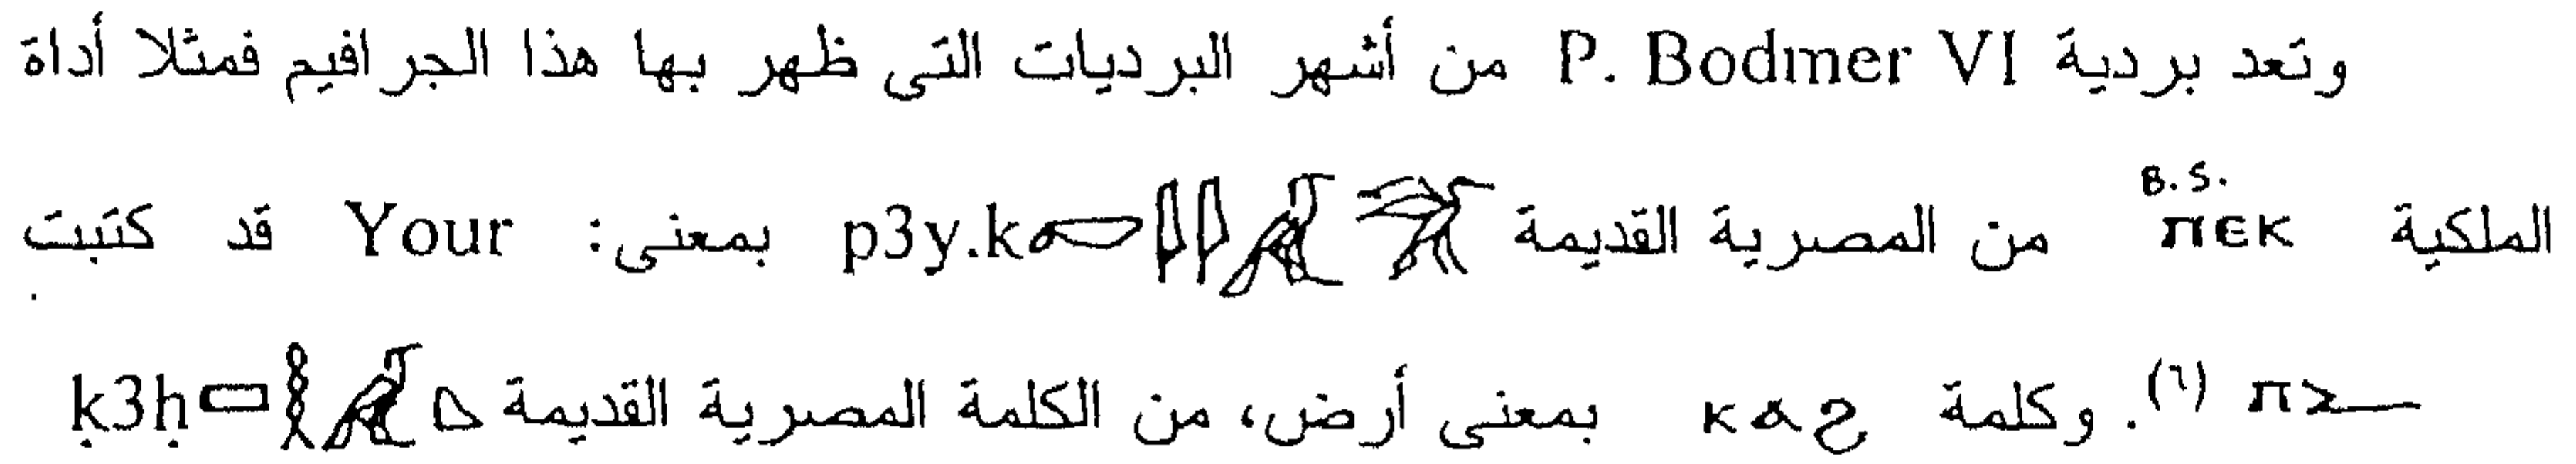 وتعد بردية P. Bodmer VI من أشهر البرديات التى ظهر بها هذا الجرافيم فمثلا أداة
الملكية ⲡⲉⲕ B.S. من المصرية القديمة p3y.k بمعنى: Your قد كتبت
ⲡ (٦). وكلمة ⲕⲁϩ بمعنى أرض، من الكلمة المصرية القديمة ḳ3ḥ